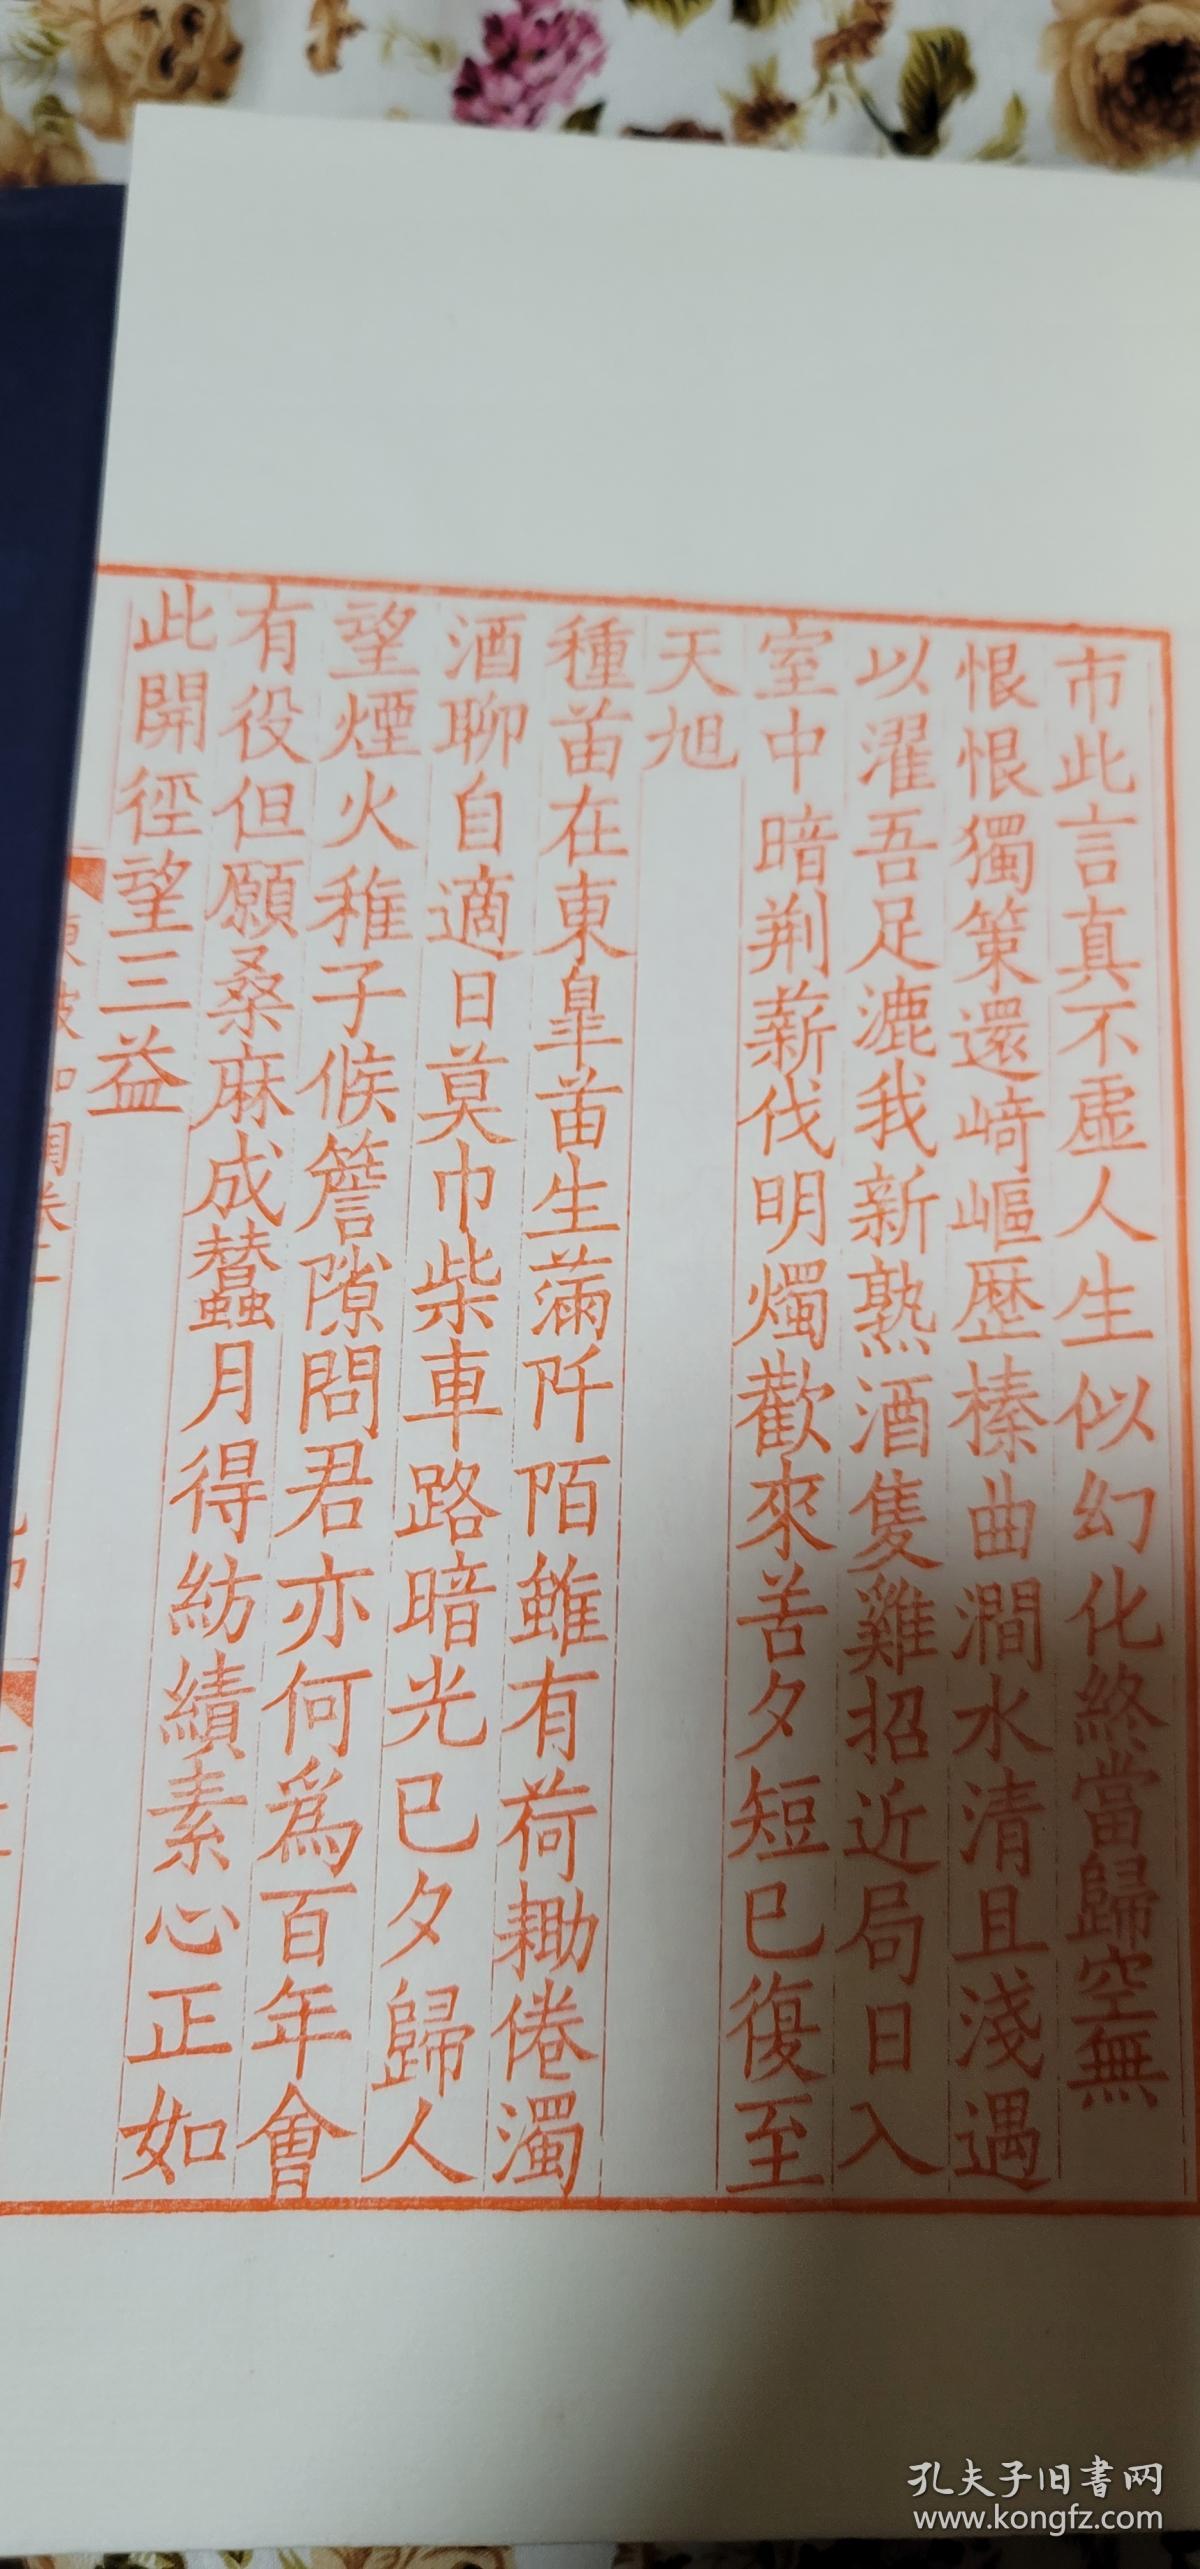 市此言真不虛人生似幻化終當歸空無
恨恨獨策還﨑嶇歷榛曲澗水清且淺遇
以濯吾足漉我新熟酒隻雞招近局日入
室中暗荆薪伐明燭歡來苦夕短巳復至
天旭
種苗在東皐苗生滿阡陌雖有荷耡倦濁
酒聊自適日莫巾柴車路暗光巳夕歸人
望煙火稚子候簷隙問君亦何爲百年會
有役但願桑麻成蠶月得紡績素心正如
此開徑望三益
孔夫子旧书网
www.kongfz.com